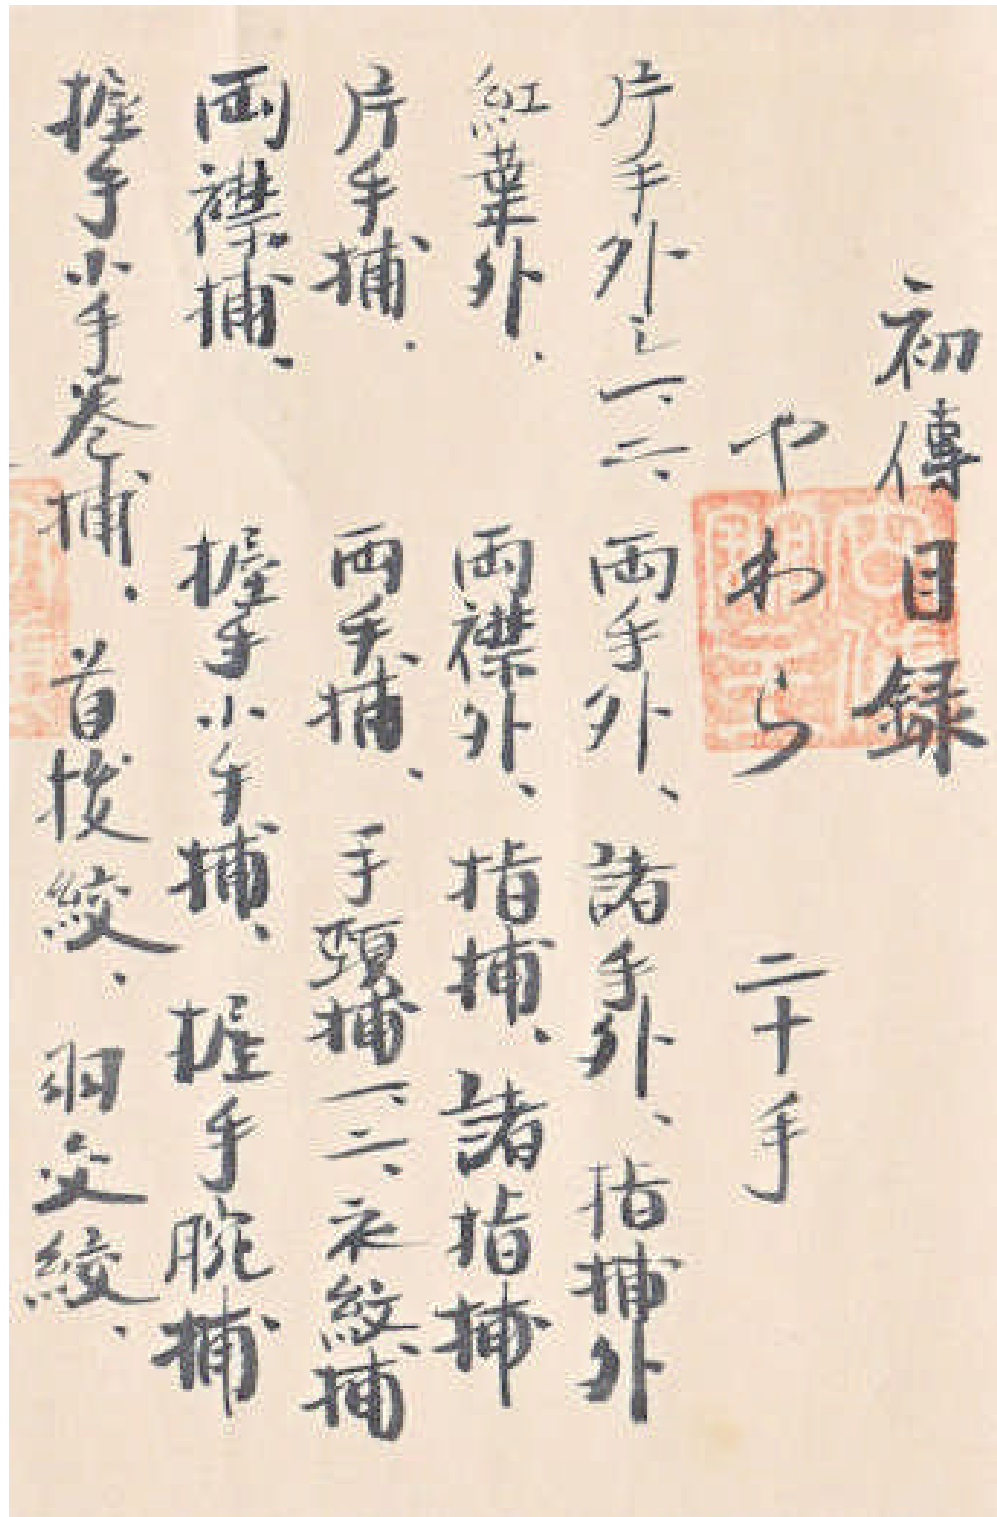 初傳目録
やわら 二十手
片手外シ一、二、両手外、諸手外、指捕外
紅葉外、両襟外、指捕、諸指捕
片手捕、両手捕、手頚捕一、二、衣紋捕
両襟捕、握手小手捕、握手腕捕
握手小手巻捕、首抜絞、羽交絞、